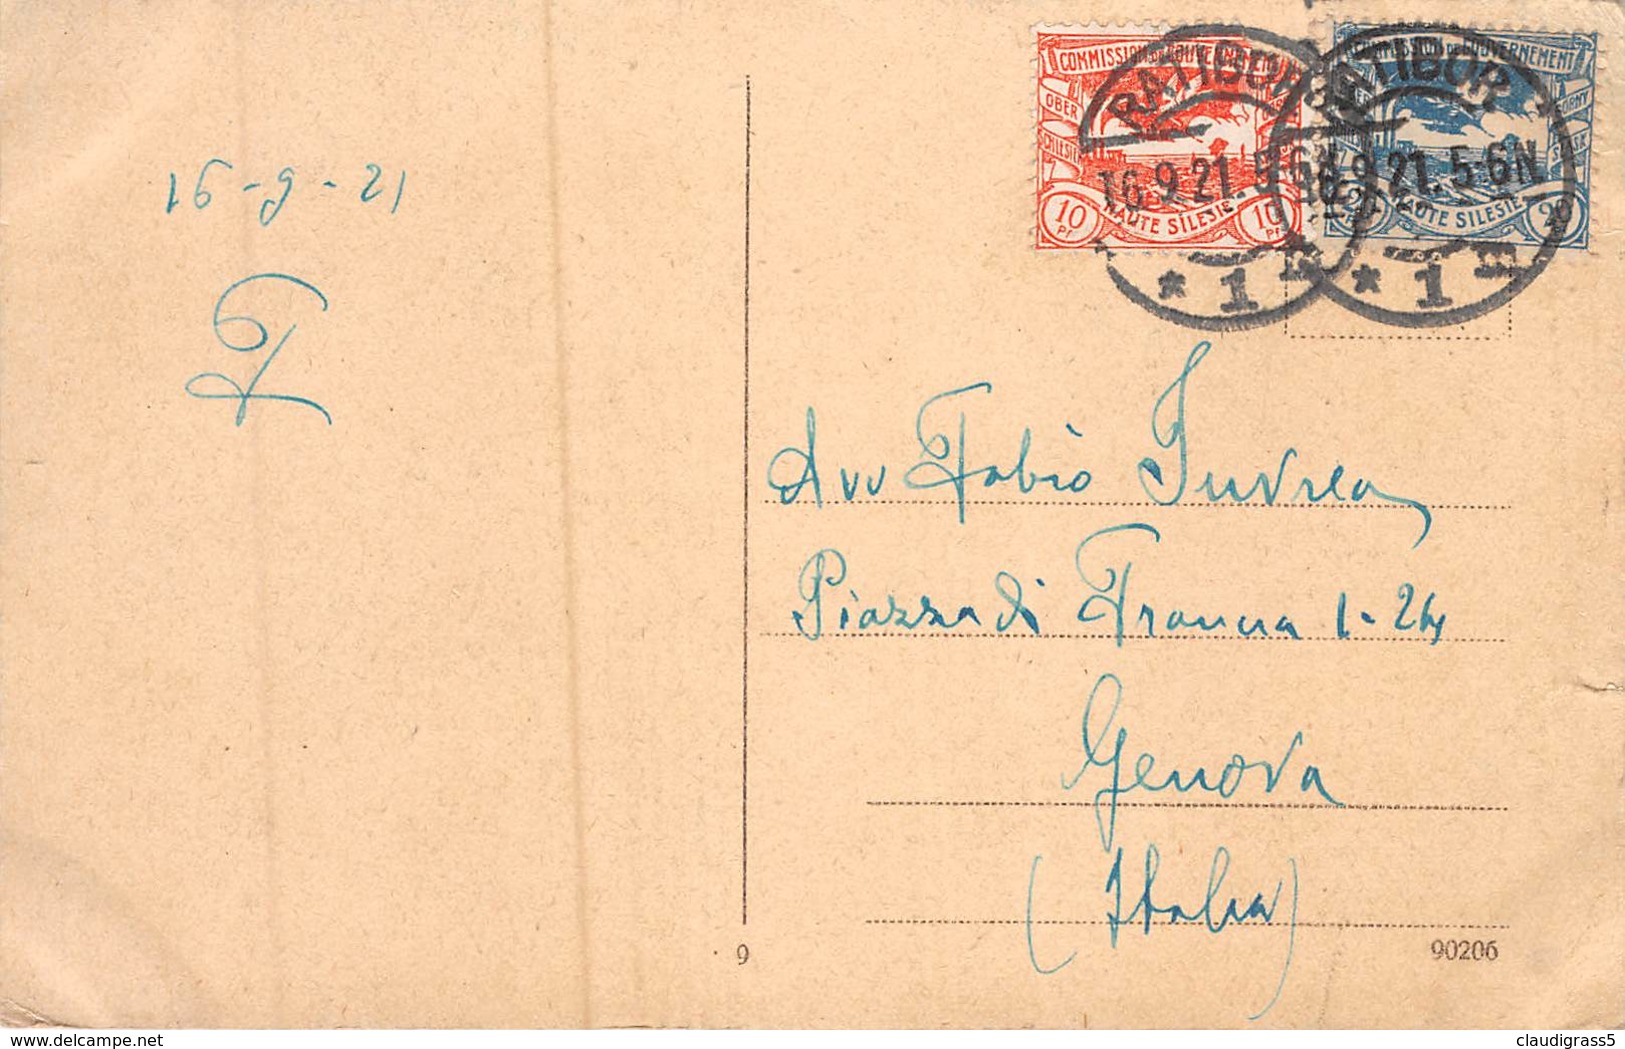 16-9-21
F
COMMISSION DU GOUVERNEMENT
OBER
SCHLESIEN
10 Pf HAUTE SILESIE 10 Pf
COMMISSION DU GOUVERNEMENT
GORNY
HAUTE SILESIE 20
RATIBOR
16.9.21.5-6N
* 1
RATIBOR
16.9.21.5-6N
* 1 m
Avv Fabio Invrea
Piazza di Francia 1-24
Genova
(Italia)
9
90206
delcampe.net
claudigrass5